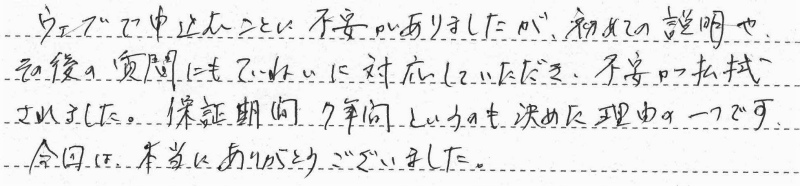 ウェブで申込むことに不安がありましたが、初めての説明や、
その後の質問にもていねいに対応していただき、不安が払拭
されました。保証期間7年間というのも決めた理由の一つです。
今回は、本当にありがとうございました。